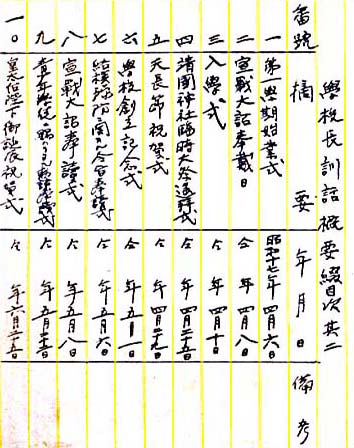 學校長訓話概要綴目次其二
番號 摘要 年月日 備考
一 第一學期始業式 昭和十七年四月六日
二 宣戰大詔奉戴日 仝年四月八日
三 入學式 仝年四月十日
四 靖國神社臨時大祭遙拜式 仝年四月二十五日
五 天長節祝賀式 仝年四月二十九日
六 學校創立記念式 仝年五月一日
七 仝年五月六日
八 宣戰大詔奉讀式 仝年五月八日
九 青年學徒ニ賜ハリタル勅語奉讀式 仝年五月二十二日
一〇 皇太后陛下御誕辰祝賀式 仝年六月二十五日